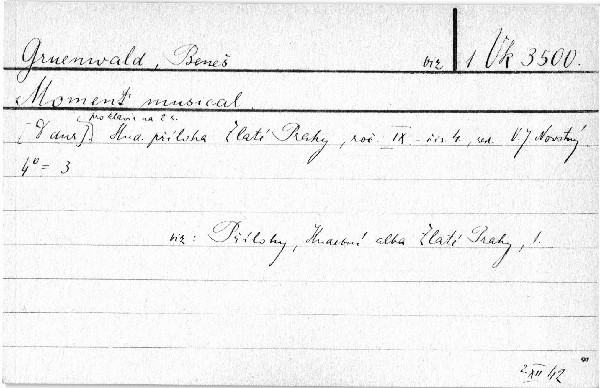 Gruenwald, Beneš viz 1 Vk 3500.
Moment musical.
pro klavír na 2 r.
[D dur]. Hud. příloha Zlaté Prahy, roč. IX - čís 4, red. VJ Novotný.
4° = 3
viz: Přílohy, Hudební alba Zlaté Prahy, 1.
2 XII 42